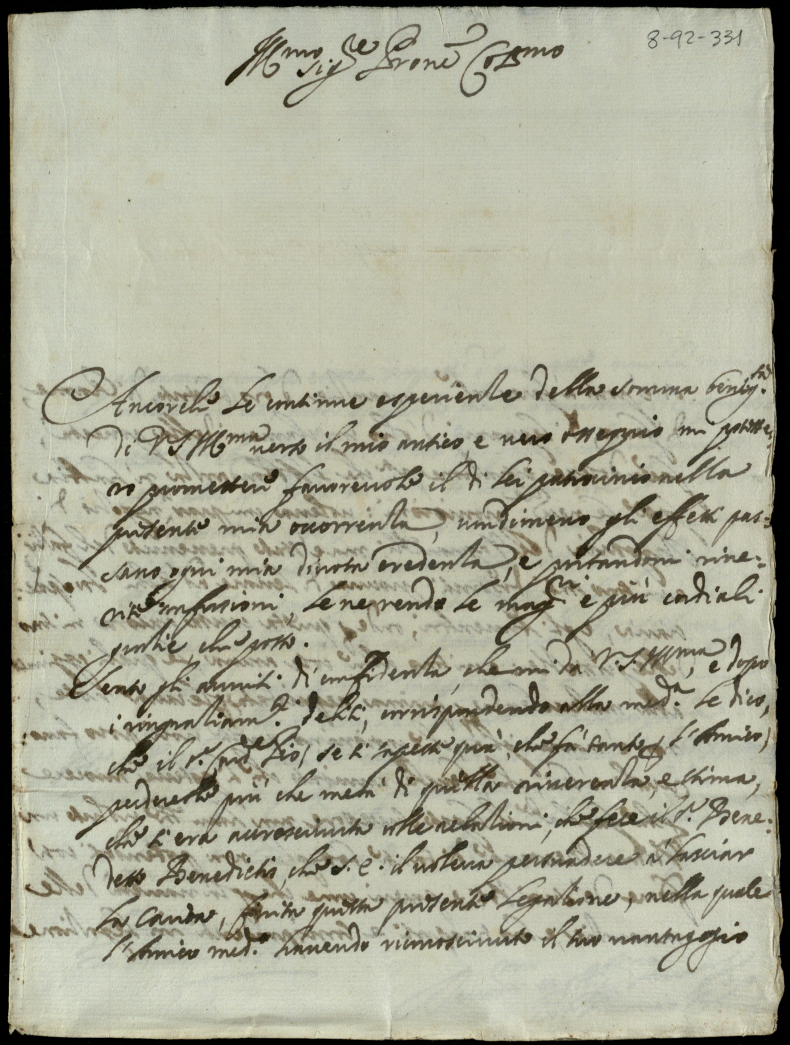 8-92-331
Ill.mo Sig.re Prone Col.mo
Ancorche le continue esperienze della somma benig.tà
di V.S. Ill.ma verso il mio antico, e vero ossequio mi potesse-
ro promettere favorevole il di lei patrocinio nella
presente mia occorrenza, nondimeno gli effetti pas-
sano ogni mia divota credenza, e portandomi rive-
rite confusioni, le ne rendo le mag.ri e più cordiali
gratie che posso.
Sento gli avvisi di confidenza, che mi dà V.S. Ill.ma, e dopo
i ringratiam.ti delli, corrispondendo alla med.a le dico,
che il S.r Card.e Zio, se si sapesse quà, che fà tanto l'Amico,
perderebbe più che metà di quella riverenza, e stima,
che s'era accresciuta alle relationi, che fece il S.r Bene-
detto Benedictis che S.E. il voleva persuadere à lasciar
la Cauda, finita questa presente Legatione, nella quale
l'Amico med.o havendo riconosciuto il suo vantaggio